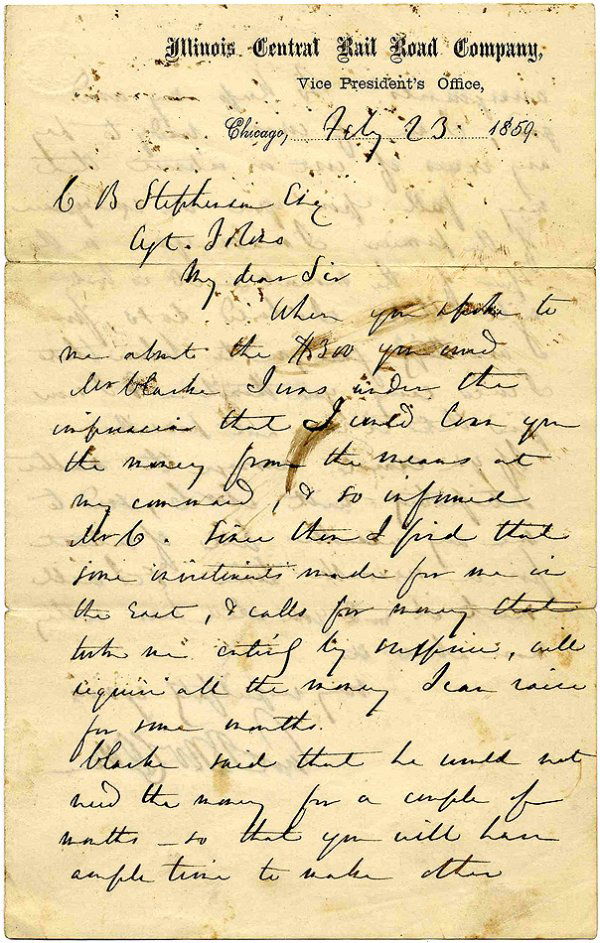 Illinois Central Rail Road Company,
Vice President's Office,
Chicago, Feby 23 1859.
C B Stephenson Esq
Agt.
My dear Sir
When you spoke to
me about the $300 you owed
Mr Clarke I was under the
impression that I could loan you
the money from the means at
my command, & so informed
Mr C. Since then I find that
some investments made for me in
the East, & calls for money that
took me entirely by surprise, will
require all the money I can raise
for some months.
Clarke said that he would not
need the money for a couple of
months – so that you will have
ample time to make other